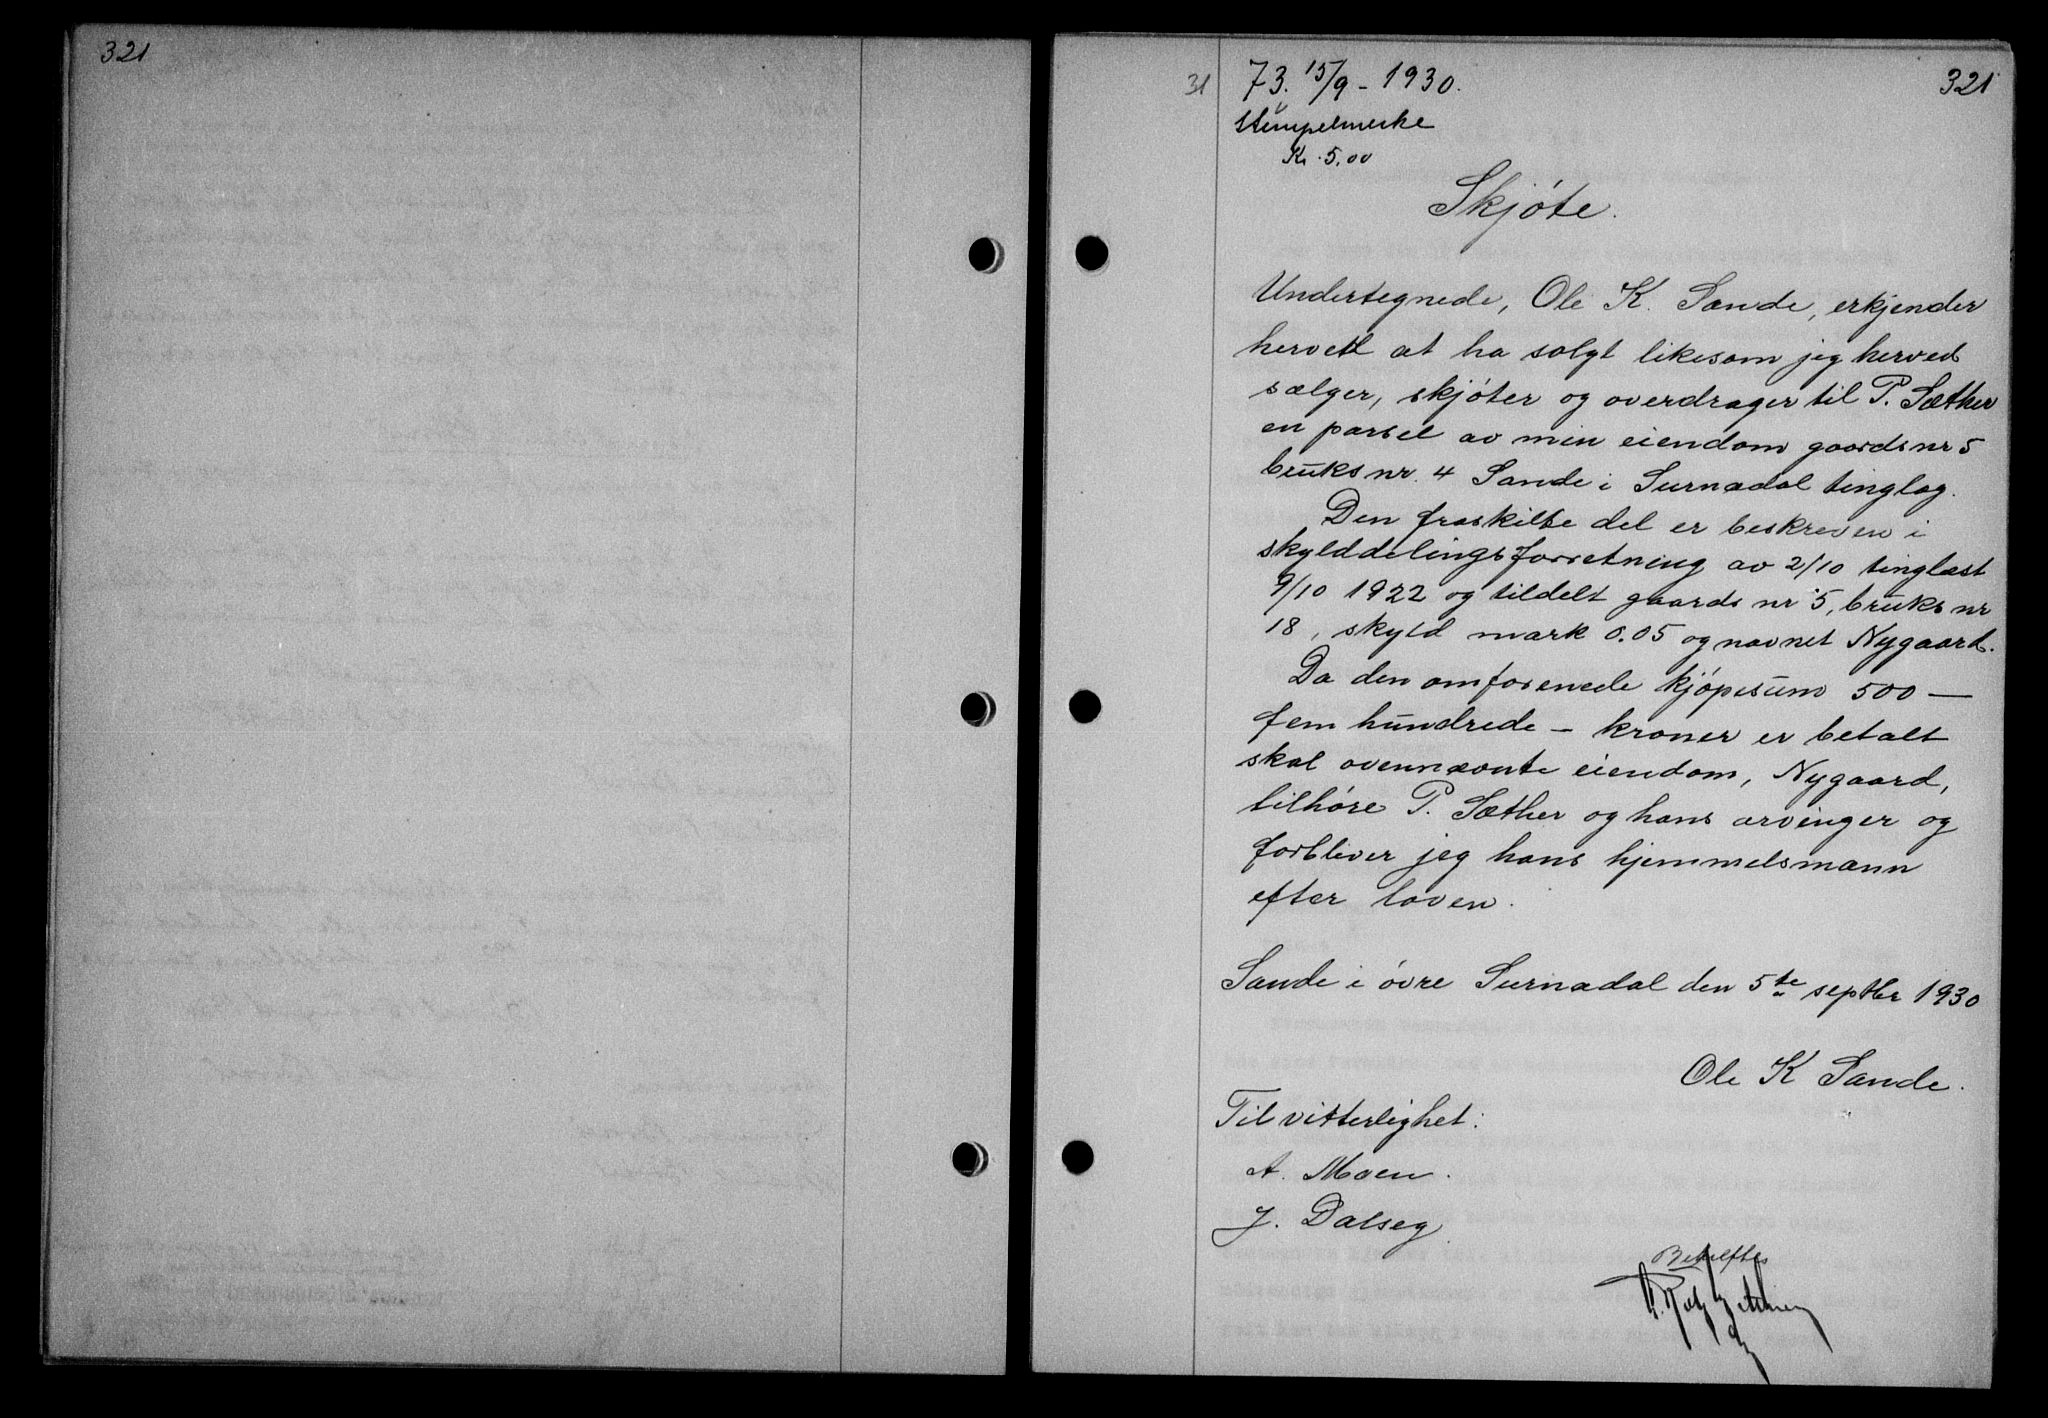 321
31 73. 15/9 - 1930. 321
Stempelmerke
Kr. 5.00
Skjøte.
Undertegnede, Ole K. Sande, erkjender
herved at ha solgt likesom jeg herved
sælger, skjøter og overdrager til P. Sæther
en parsel av min eiendom gaardsnr 5
bruksnr. 4 Sande i Surnadal tinglag.
Den fraskilte del er beskreven i
skylddelingsforretning av 2/10 tinglæst
9/10 1922 og tildelt gaards nr 5, bruks nr
18, skyld mark 0.05 og navnet Nygaard.
Da den omforenede kjøpesum 500 —
fem hundrede – kroner er betalt
skal ovennævnte eiendom, Nygaard,
tilhøre P. Sæther og hans arvinger og
forbliver jeg hans hjemmelsmann
efter loven.
Sande i øvre Surnadal den 5te septbr 1930
Ole K Sande.
Til vitterlighet:
A. Moen.
J. Dalseg.
Bekreftes